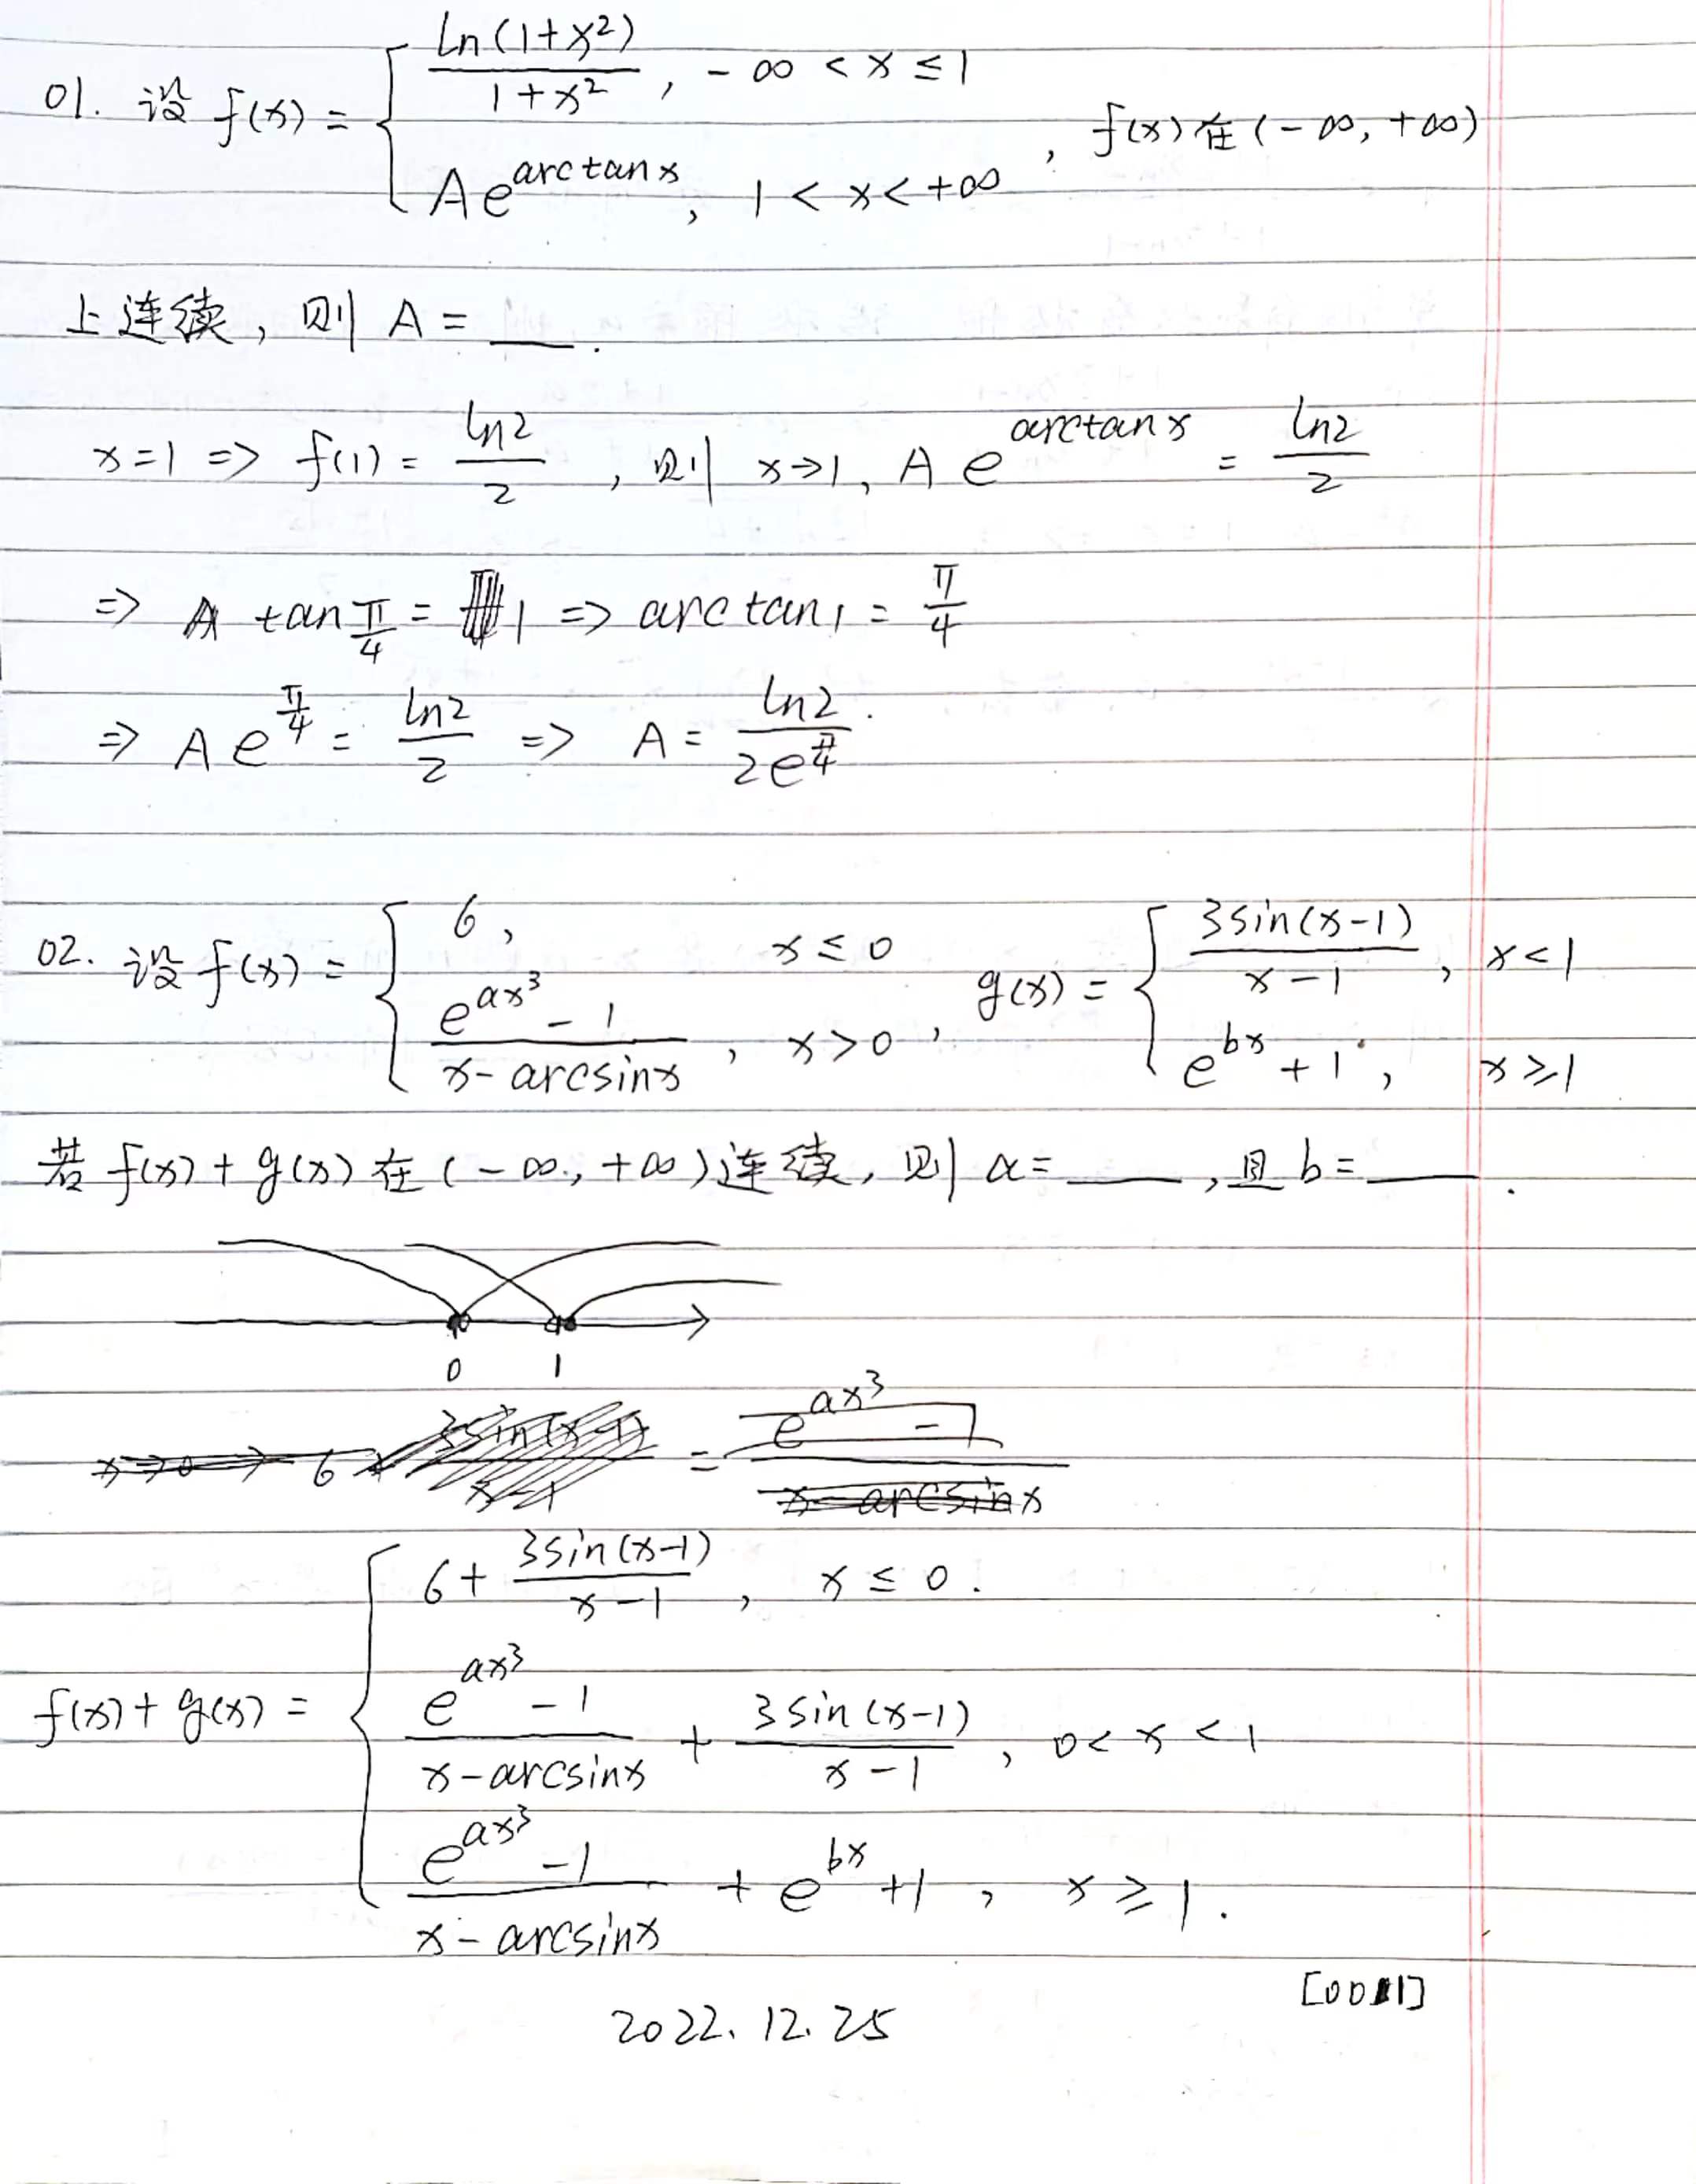 01. 设 f(x) = { ln(1+x²)/(1+x²), -∞ < x ≤ 1
A e^{arctanx}, 1 < x < +∞ , f(x) 在 (-∞, +∞)
上连续, 则 A = ___.
x=1 => f(1) = ln2/2, 则 x→1, A e^{arctanx} = ln2/2
=> tan π/4 = 1 => arctan1 = π/4
=> A e^{π/4} = ln2/2 => A = ln2/(2e^{π/4}).
02. 设 f(x) = { 6, x ≤ 0
(e^{ax³} - 1)/(x - arcsinx), x > 0 , g(x) = { 3sin(x-1)/(x-1), x < 1
e^{bx} + 1, x ≥ 1
若 f(x) + g(x) 在 (-∞, +∞) 连续, 则 a = ___, 且 b = ___.
0 1
x→0 → 6 + 3sin(x-1)/(x-1) = (e^{ax³} - 1)/(x - arcsinx)
f(x) + g(x) = { 6 + 3sin(x-1)/(x-1), x ≤ 0.
(e^{ax³} - 1)/(x - arcsinx) + 3sin(x-1)/(x-1), 0 < x < 1
(e^{ax³} - 1)/(x - arcsinx) + e^{bx} + 1, x ≥ 1.
[001]
2022. 12. 25